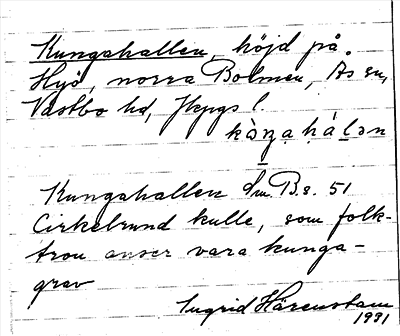 Kungahallen, höjd på
Hyö, norra Bolmen, Ås sn,
Västbo hd, Jkpgs l.
kàŋahálən
Kungahallen Sm. B.s. 51
Cirkelrund kulle, som folk-
tron anser vara kunga-
grav
Ingrid Härenstam
1931